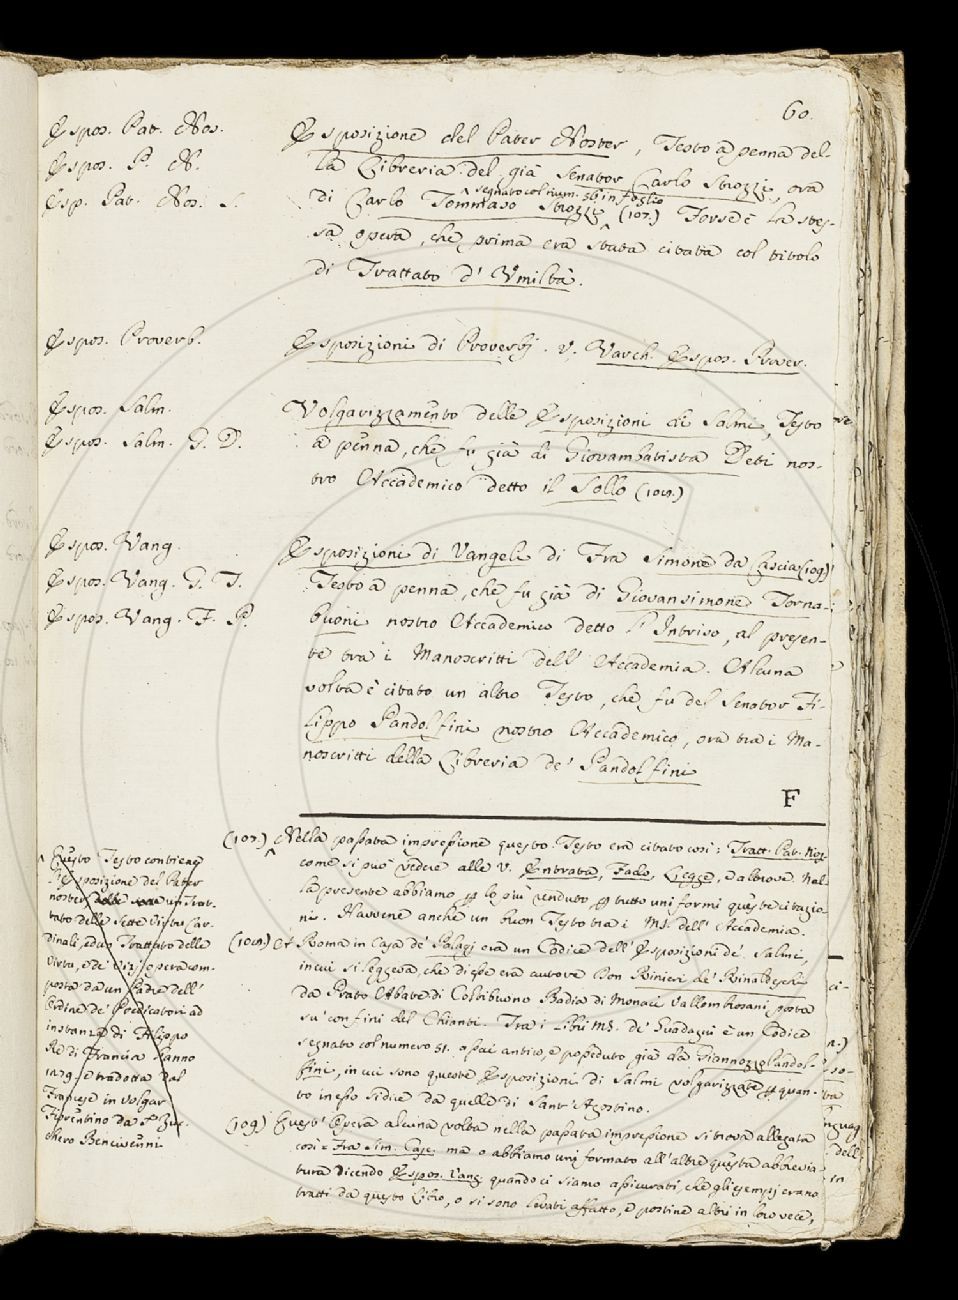 60.
Espos. Pat. Nos.
Espos. P. N.
Esp. Pat. Nos. S.
Esposizione del Pater Noster, Testo a penna del-
la Libreria del già Senator Carlo Strozzi, ora
segnato col num. 56 in foglio
di Carlo Tommaso Strozzi (107.) Forse è la stes-
sa opera, che prima era stata citata col titolo
di Trattato d' Umiltà.
Espos. Proverb.
Esposizioni di Proverbj. V. Varch. Espos. Prover.
Espos. Salm.
Espos. Salm. G. D.
Volgarizzamento delle Esposizioni di Salmi, Testo
a penna, che fu già di Giovambatista Deti nos-
tro Accademico detto il Sollo (108.)
Espos. Vang.
Espos. Vang. G. T.
Espos. Vang. F. P.
Esposizioni di Vangeli di Fra Simone da Cascia (109)
Testo a penna, che fu già di Giovansimone Torna-
buoni nostro Accademico detto l' Intriso, al presen-
te tra i Manoscritti dell' Accademia. Alcuna
volta è citato un altro Testo, che fu del Senator Fi-
lippo Pandolfini nostro Accademico, ora tra i Ma-
noscritti della Libreria de' Pandolfini
F
(107.) Nella passata impressione questo Testo era citato così: Tratt. Pat. Nos.
come si può vedere alle V. Entrata, Fado, Legge, e altrove. Nel-
la presente abbiamo p lo più renduto p tutto uniformi queste citazio
ni. Havvene anche un buon Testo tra i MS. dell' Accademia.
(108.) A Roma in Casa de' Palagi era un Codice dell' Esposizioni de' Salmi,
in cui si leggeva, che d'esse era autore Don Rinieri de' Rinaldeschi
da Prato Abate di Coltibuono Badia di Monaci Vallombrosani posta
su' confini del Chianti. Tra i libri MS. de' Guadagni è un Codice
segnato col numero 51. assai antico, e posseduto già da Giannozzo Pandol-
fini, in cui sono queste Esposizioni di Salmi volgarizzate p quan-
to in esso si dice da quelle di Sant' Agostino.
(109) Quest' Opera alcuna volta nella passata impressione si trova allegata
così = Fra Sim. Casc. ma o abbiamo uniformato all' altre questa abbrevia
tura dicendo Espos. Vang. quando ci siamo assicurati, che gli esempj erano
tratti da questo Libro, o si sono levati affatto, e postine altri in loro vece,
Questo Testo contiene
l'Esposizione del Pater
noster un Trat-
tato delle Sette Virtù Car-
dinali, ed un Trattato delle
Virtù, e de' Vizj, opera com-
posta da un Padre dell'
Ordine de' Predicatori ad
instanza di Filippo
Re di Francia l'anno
1279. e tradotta dal
Franzese in volgar
Fiorentino da Sr. Zuc-
chero Bencivenni